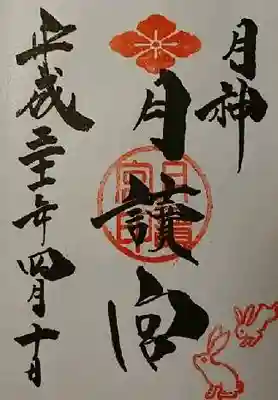 月神
月讀宮
平成三十一年四月十日
月讀宮印